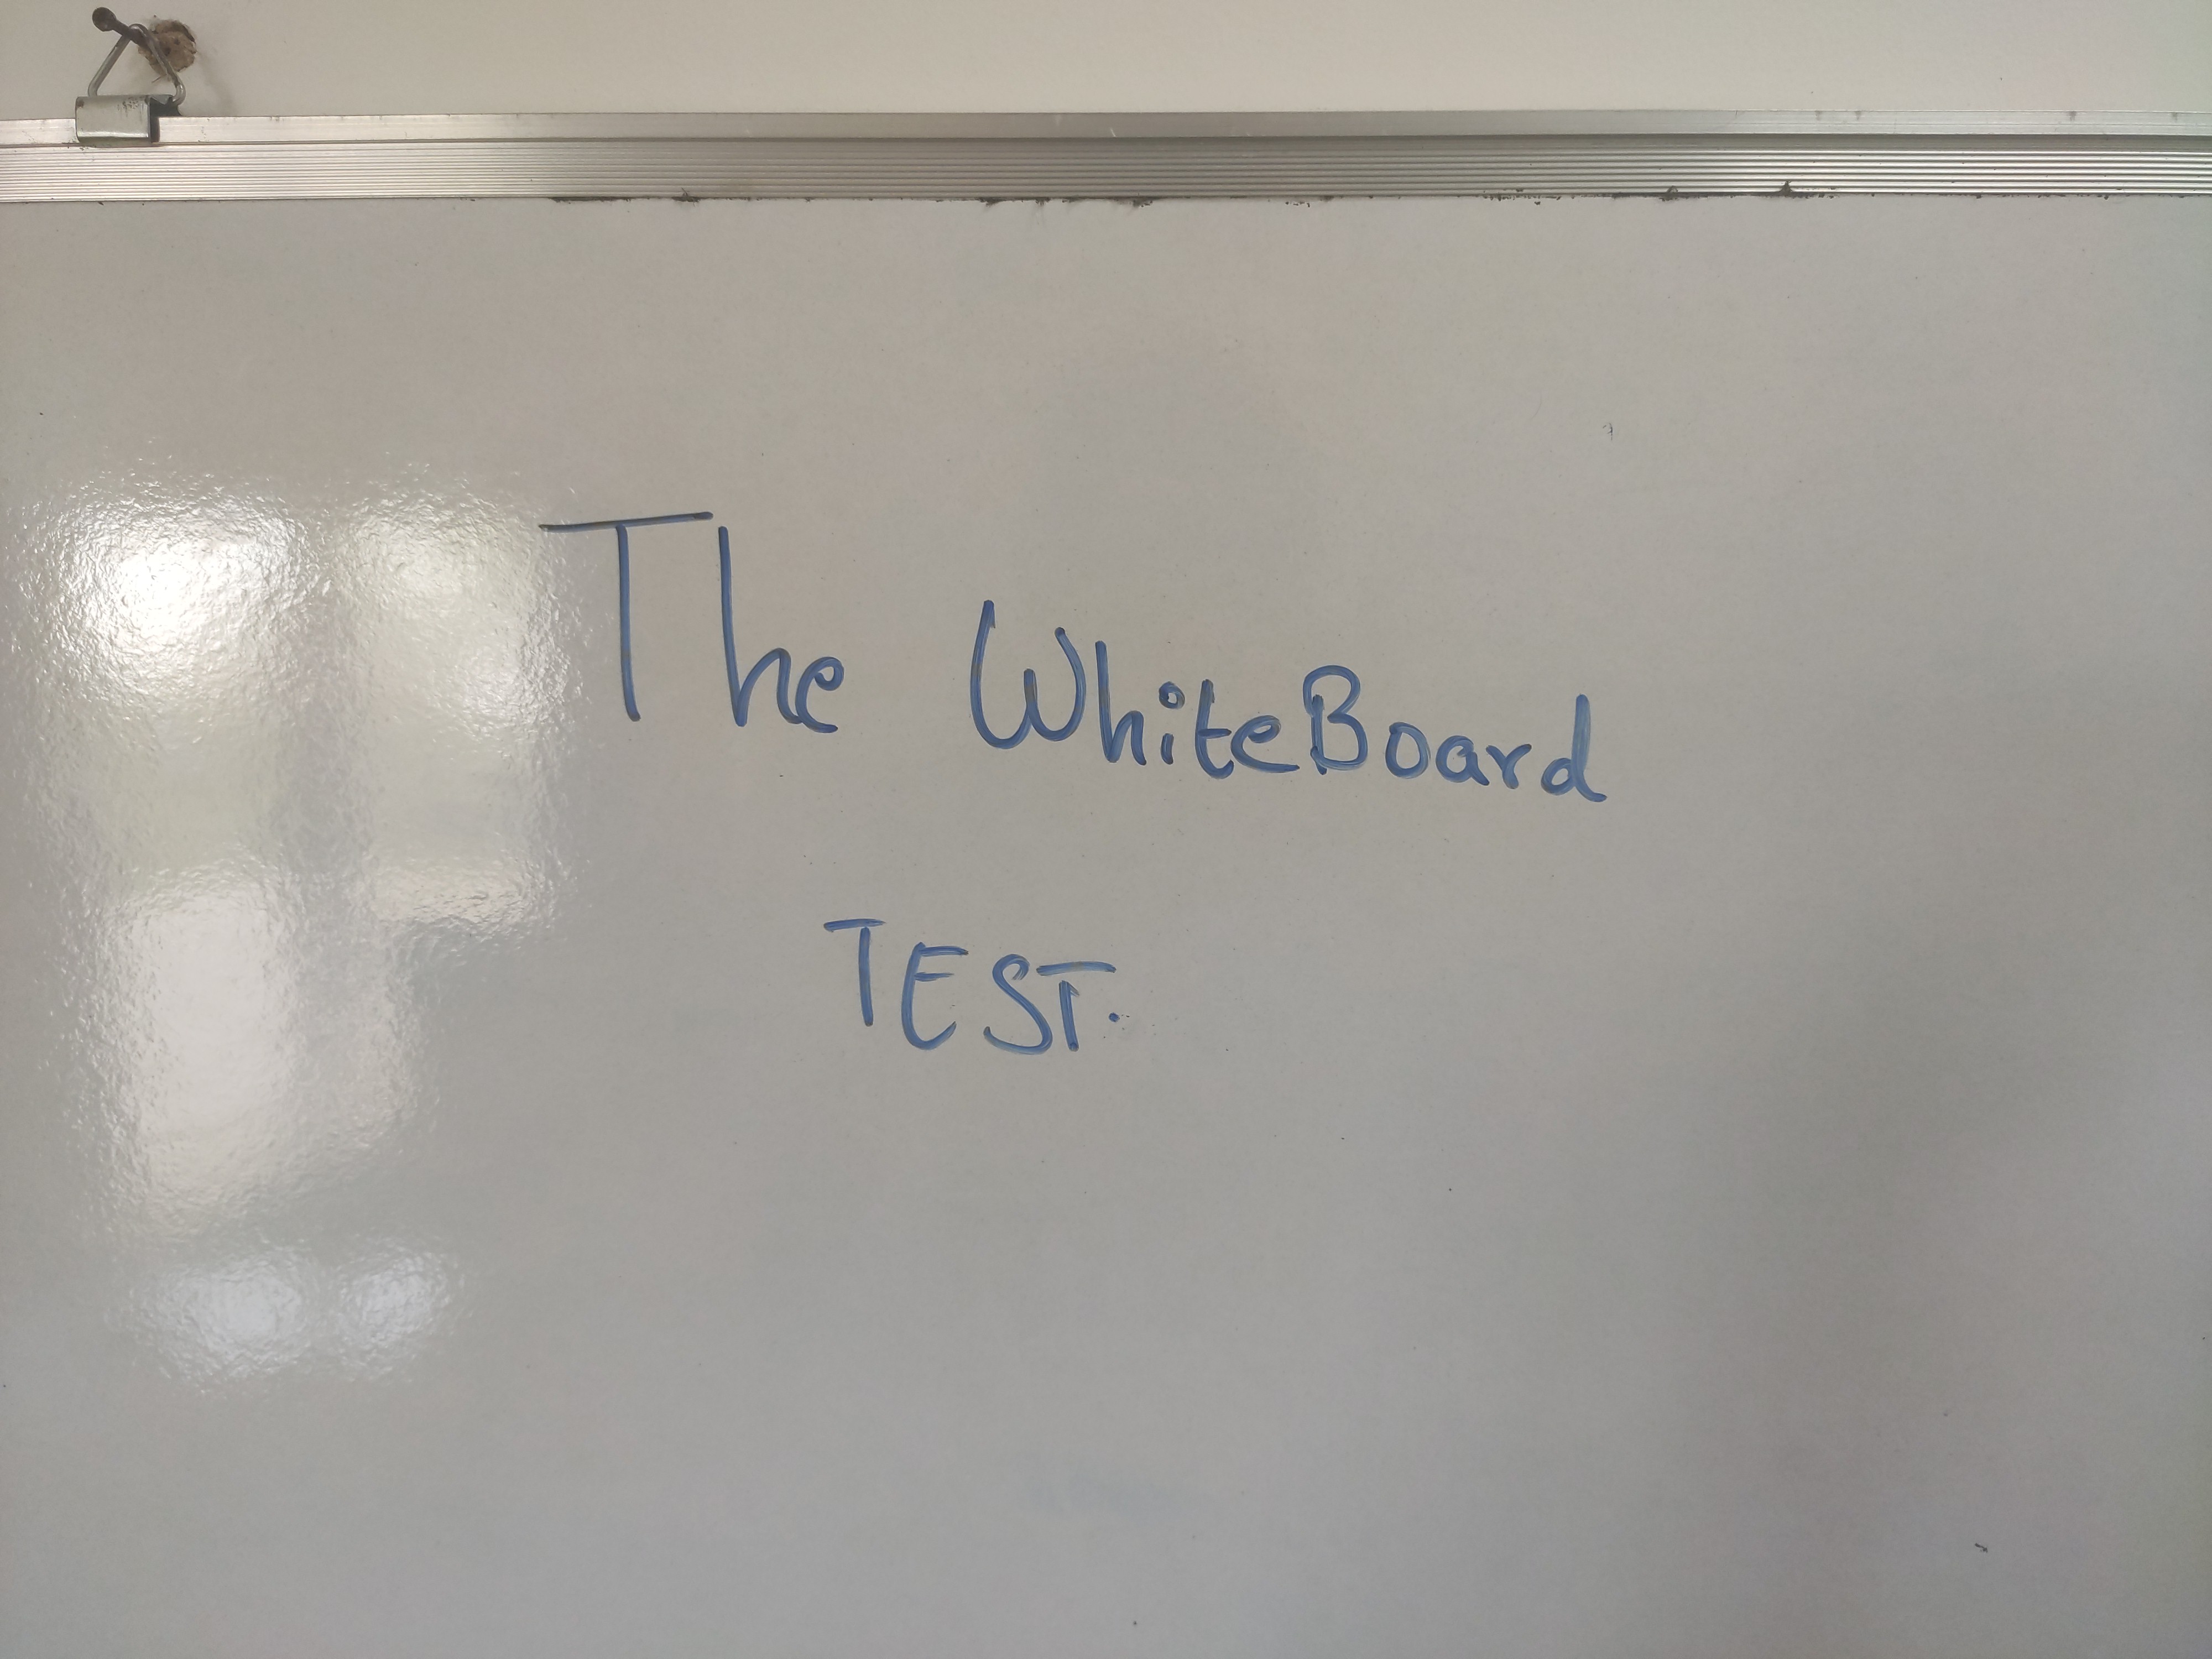 The WhiteBoard
TEST.